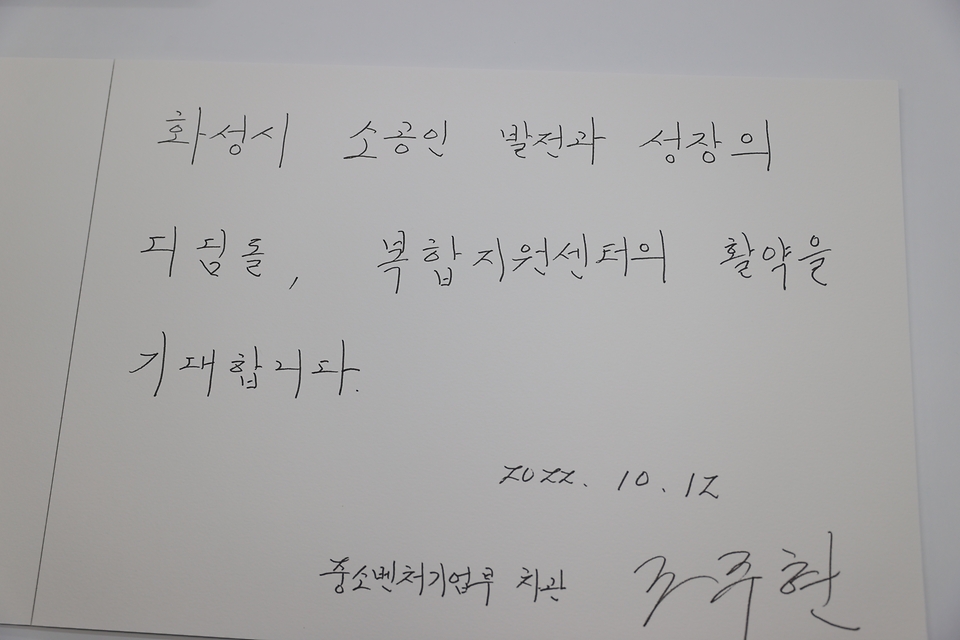 화성시 소공인 발전과 성장의
디딤돌, 복합지원센터의 활약을
기대합니다.
2022. 10. 12
중소벤처기업부 차관 조주현